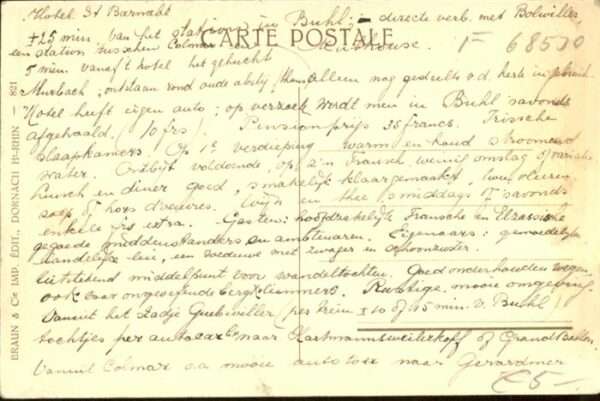 Hotel St Barnabé
± 25 min. van het station in Buhl; - directe verb. met Bolwiller,
een station tusschen Colmar en Mulhouse.
CARTE POSTALE
F 68530
5 min. vanaf 't hotel het gehucht
Murbach; ontstaan rond oude abdij thans alleen nog gedeelte v.d. kerk in gebruik
Hotel heeft eigen auto; op verzoek wordt men in Buhl savonds
afgehaald. 10 frs. Pensionprijs 35 francs. Frissche
slaapkamers. Op 1e verdieping warm en koud stroomend
water. Ontbijt voldoende, op z'n Fransch, weinig omslag of variatie
lunch en diner goed, smakelijk klaargemaakt,
soep of hors d'oeuvres. Wijn en thee smiddags of savonds
enkele frs extra. Gasten: hoofdzakelijk Fransche en Elzassische
gegoede middenstanders en ambtenaren. Eigenaars: gemoedelijke
landelijke lui, een weduwe met zwager en schoonzuster.
Uitstekend middelpunt voor wandeltochten. Goed onderhouden wegen
ook voor ongeoefende bergklimmers. Rustige, mooie omgeving.
Vanuit het stadje Guebwiller (per trein ± 10 of 15 min. v. Buhl)
tochtjes per autocar naar Hartmannsweilerkopf of Grand Ballon.
Vanuit Colmar o.a. mooie autotour naar Gerardmer
£5-
BRAUN & Cie IMP. ÉDIT., DORNACH Ht-RHIN - 821